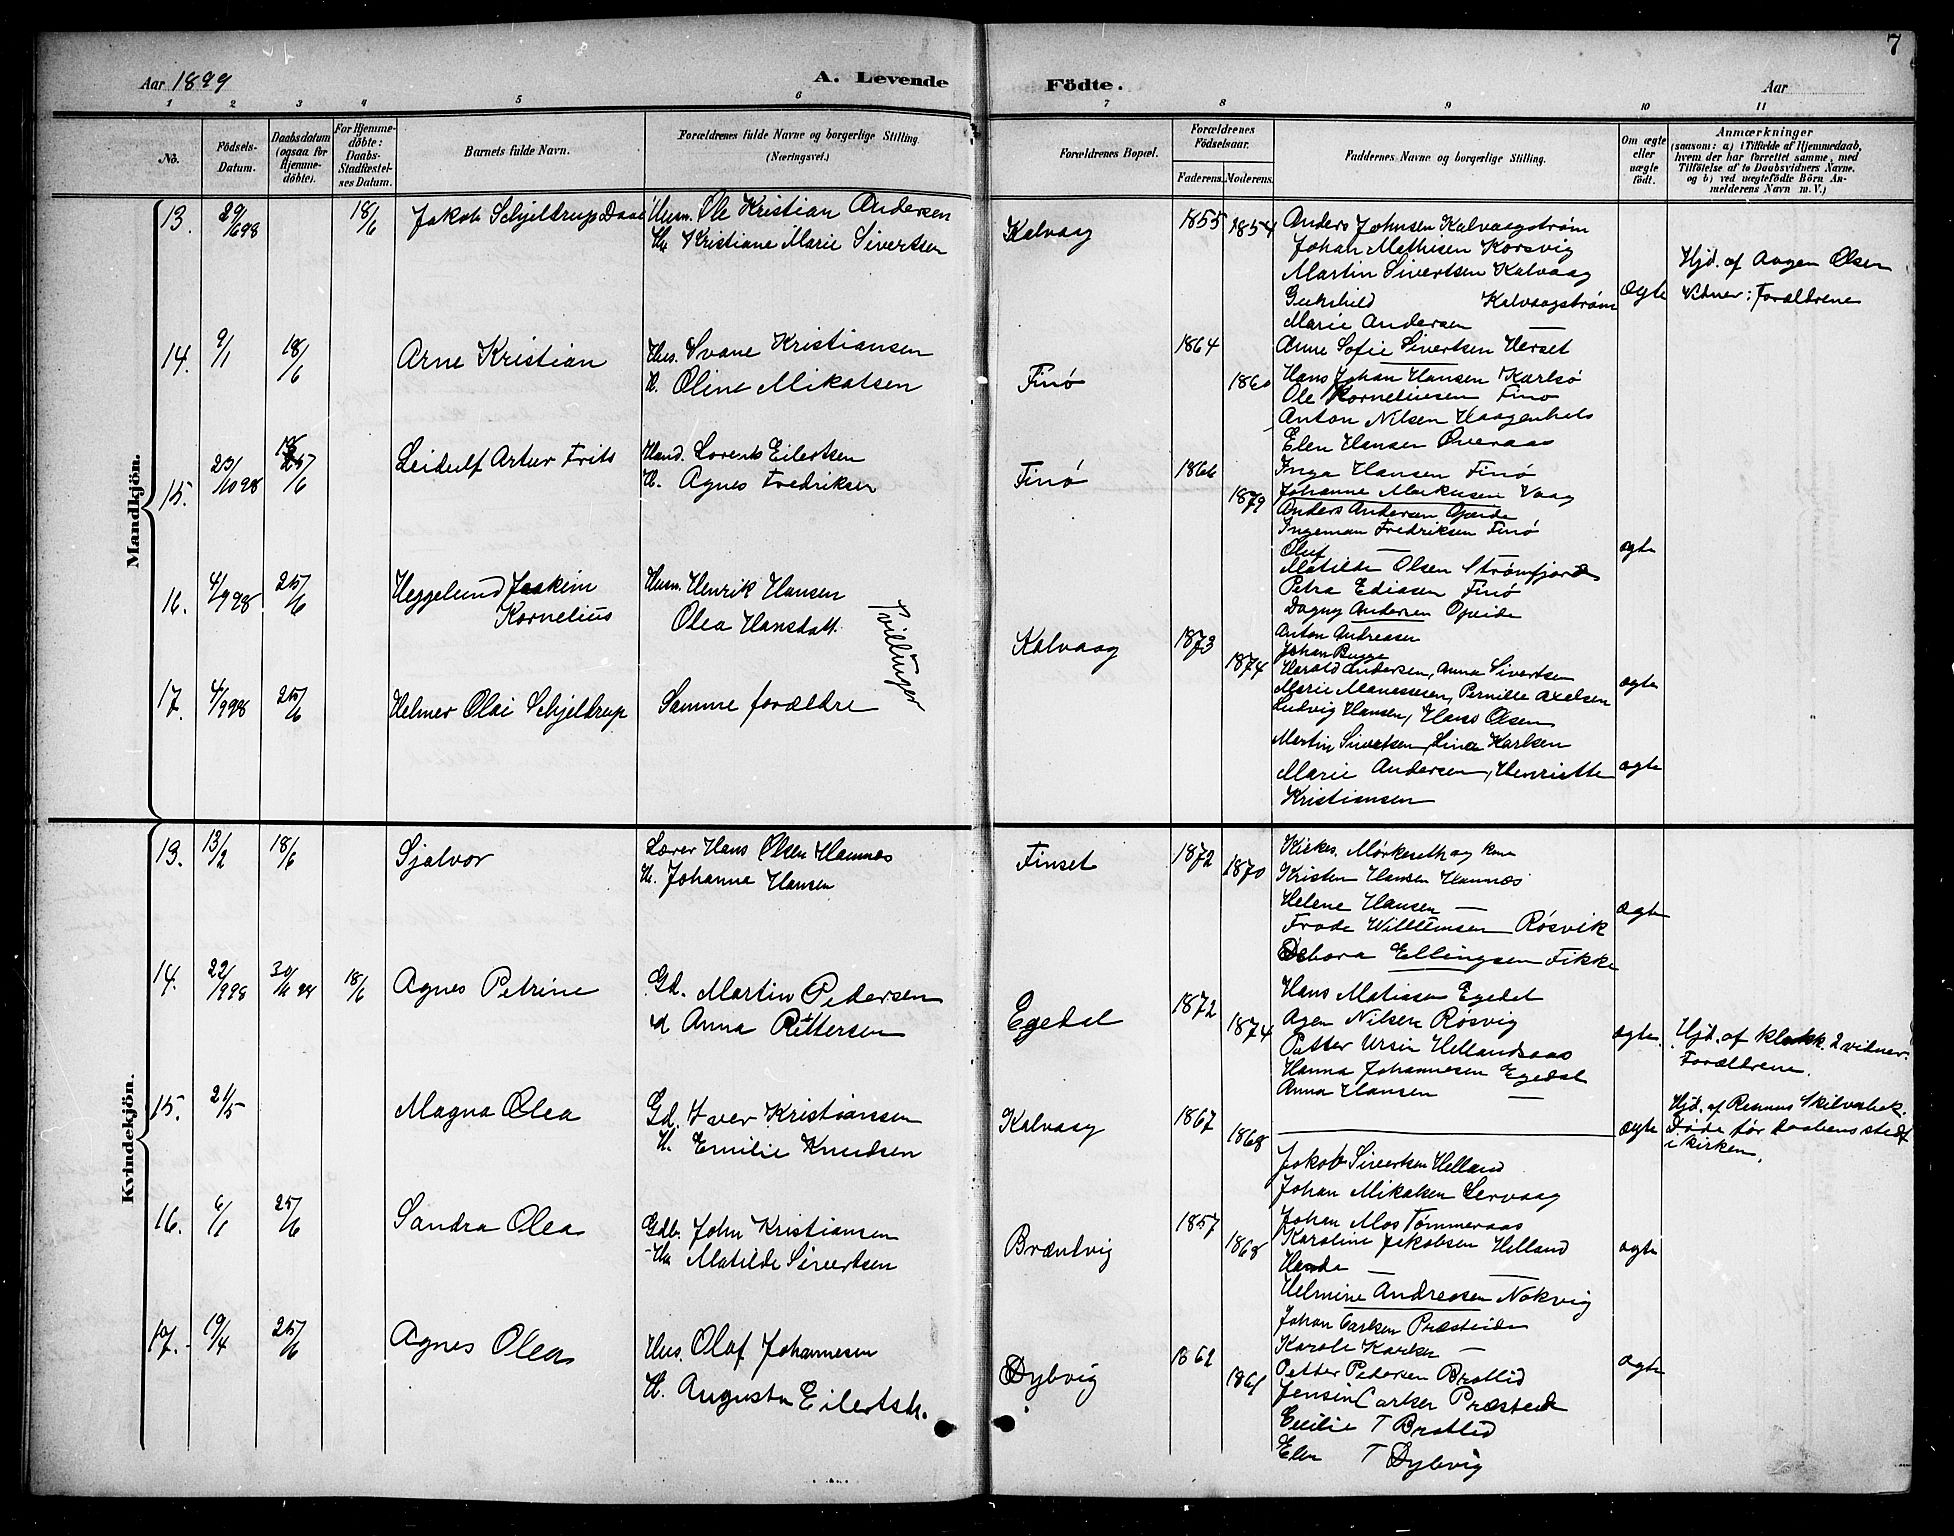 7
Aar 1899
A. Levende
Födte.
Aar
1 2 3 4 5 6 7 8 9 10 11
No.
Födsels-
Datum.
Daabsdatum
(ogsaa for
Hjemme-
döbte).
For Hjemme-
döbte:
Daabs-
Stadfæstel-
ses Datum.
Barnets fulde Navn.
Forældrenes fulde Navne og borgerlige Stilling.
(Næringsvei.)
Forældrenes Bopæl.
Forældrenes
Födselsaar.
Faderens. Moderens.
Faddernes Navne og borgerlige Stilling.
Om ægte
eller
uægte
födt.
Anmærkninger
(saasom: a) i Tilfælde af Hjemmedaab,
hvem der har forrettet samme, med
Tilföielse af to Daabsvidners Navne.
og b) ved uægtefödte Börn An-
melderens Navn m. V.)
Mandkjön.
13. 29/6 98 18/6 Jakob Schjeldrup Daae Husm. Ole Kristian Andersen
Hu Kristiane Marie Sivertsen
Kalvaag 1855 1854
Anders Johnsen Kalvaagstrøm
Johan Mathisen Korsvig
Martin Sivertsen Kalvaag
Kalvaagstrøm
Marie Andersen —
Anne Sofie Sivertsen Herset
Ægte
Hjd. af Aagen Olsen
Vidner: Forældrene
14. 9/1 18/6 Arne Kristian Hus. Svane Kristiansen
H. Oline Mikalsen
Finø 1864 1860
Hans Johan Hansen Karlsø
Ole Korneliusen Finø
Anton Nilsen Haagenhals
Elen Hansen Øveraas
Inga Hansen Finø
Johanne Markusen Vaag
15. 23/10 98 25/6 Leidulf Artur Frits Hand. Lorents Eilertsen
H. Agnes Fredriksen
Finø 1866 1879
Anders Andersen Opeide
Ingeman Fredriksen Finø
Oluf —
Matilde Olsen Strømfjord
Petra Ediasen Finø
Dagny Andersen Opeide
ægte
16. 4/9 98 25/6 Heggelund Joakim
Kornelius
Husm. Henrik Hansen
Olea Hansdatt.
Tvillinger
Kalvaag 1873 1874
Anton Andreasen
Johan Bugge
Harald Andersen, Anna Sivertsen
Marie Manassesen, Pernille Axelsen
ægte
17. 4/9 98 25/6 Helmer Olai Schjeldrup Samme forældre
Ludvig Hansen, Hans Olsen
Martin Sivertsen, Lina Karlsen
Marie Andersen, Henriette
Kristiansen
ægte
Kvindekjön.
13. 13/2 18/6 Sjalvor Lærer Hans Olsen Hamnes
H. Johanna Hansen
Finset 1872 1870
Kirkes. Mørkeseth og kone
Kristen Hansen Hamnes
Helene Hansen —
Frode Willumsen Røsvik
Debora Ellingsen Fikke
Ægte
14. 22/9 98 30/11 98 18/6 Agnes Petrine Gd. Martin Pedersen
H Anna Pettersen
Egedal 1872 1874
Hans Matissen Egedal
Agen Nilsen Røsvig
Petter Ursin Hellandsaas
Hanna Johannesen Egedal
Anna Hansen —
ægte.
Hjd. af klokk. 2 vidner:
Forældrene.
15. 21/5 Magna Olea Gd. Iver Kristianssen
H. Emilie Knudsen
Kalvaag 1867 1868
ægte
Hjd. af Rasmus Skilvabak.
Døde før daabens stadf.
i kirken.
16. 6/1 25/6 Sandra Olea Gdb. John Kristiansen
Hu Matilde Sivertsen
Brændvig 1857 1868
Jakob Sivertsen Helland
Johan Mikalsen Lervaag
Johan Mos Tømmeraas
Karoline Jakobsen Helland
Handa — —
Helmine Andreasen Nakvig
ægte
17. 19/4 25/6 Agnes Olea Hus. Olaf Johannesen
H. Augusta Eilertsd.
Dybvig 1862 1861
Johan Carlsen Præsteide
Karoli Karlsen —
Petter Pedersen Bratlid
Jensin Carlsen Præsteid
Cecilie T Bratlid
Elen T Dybvig
ægte